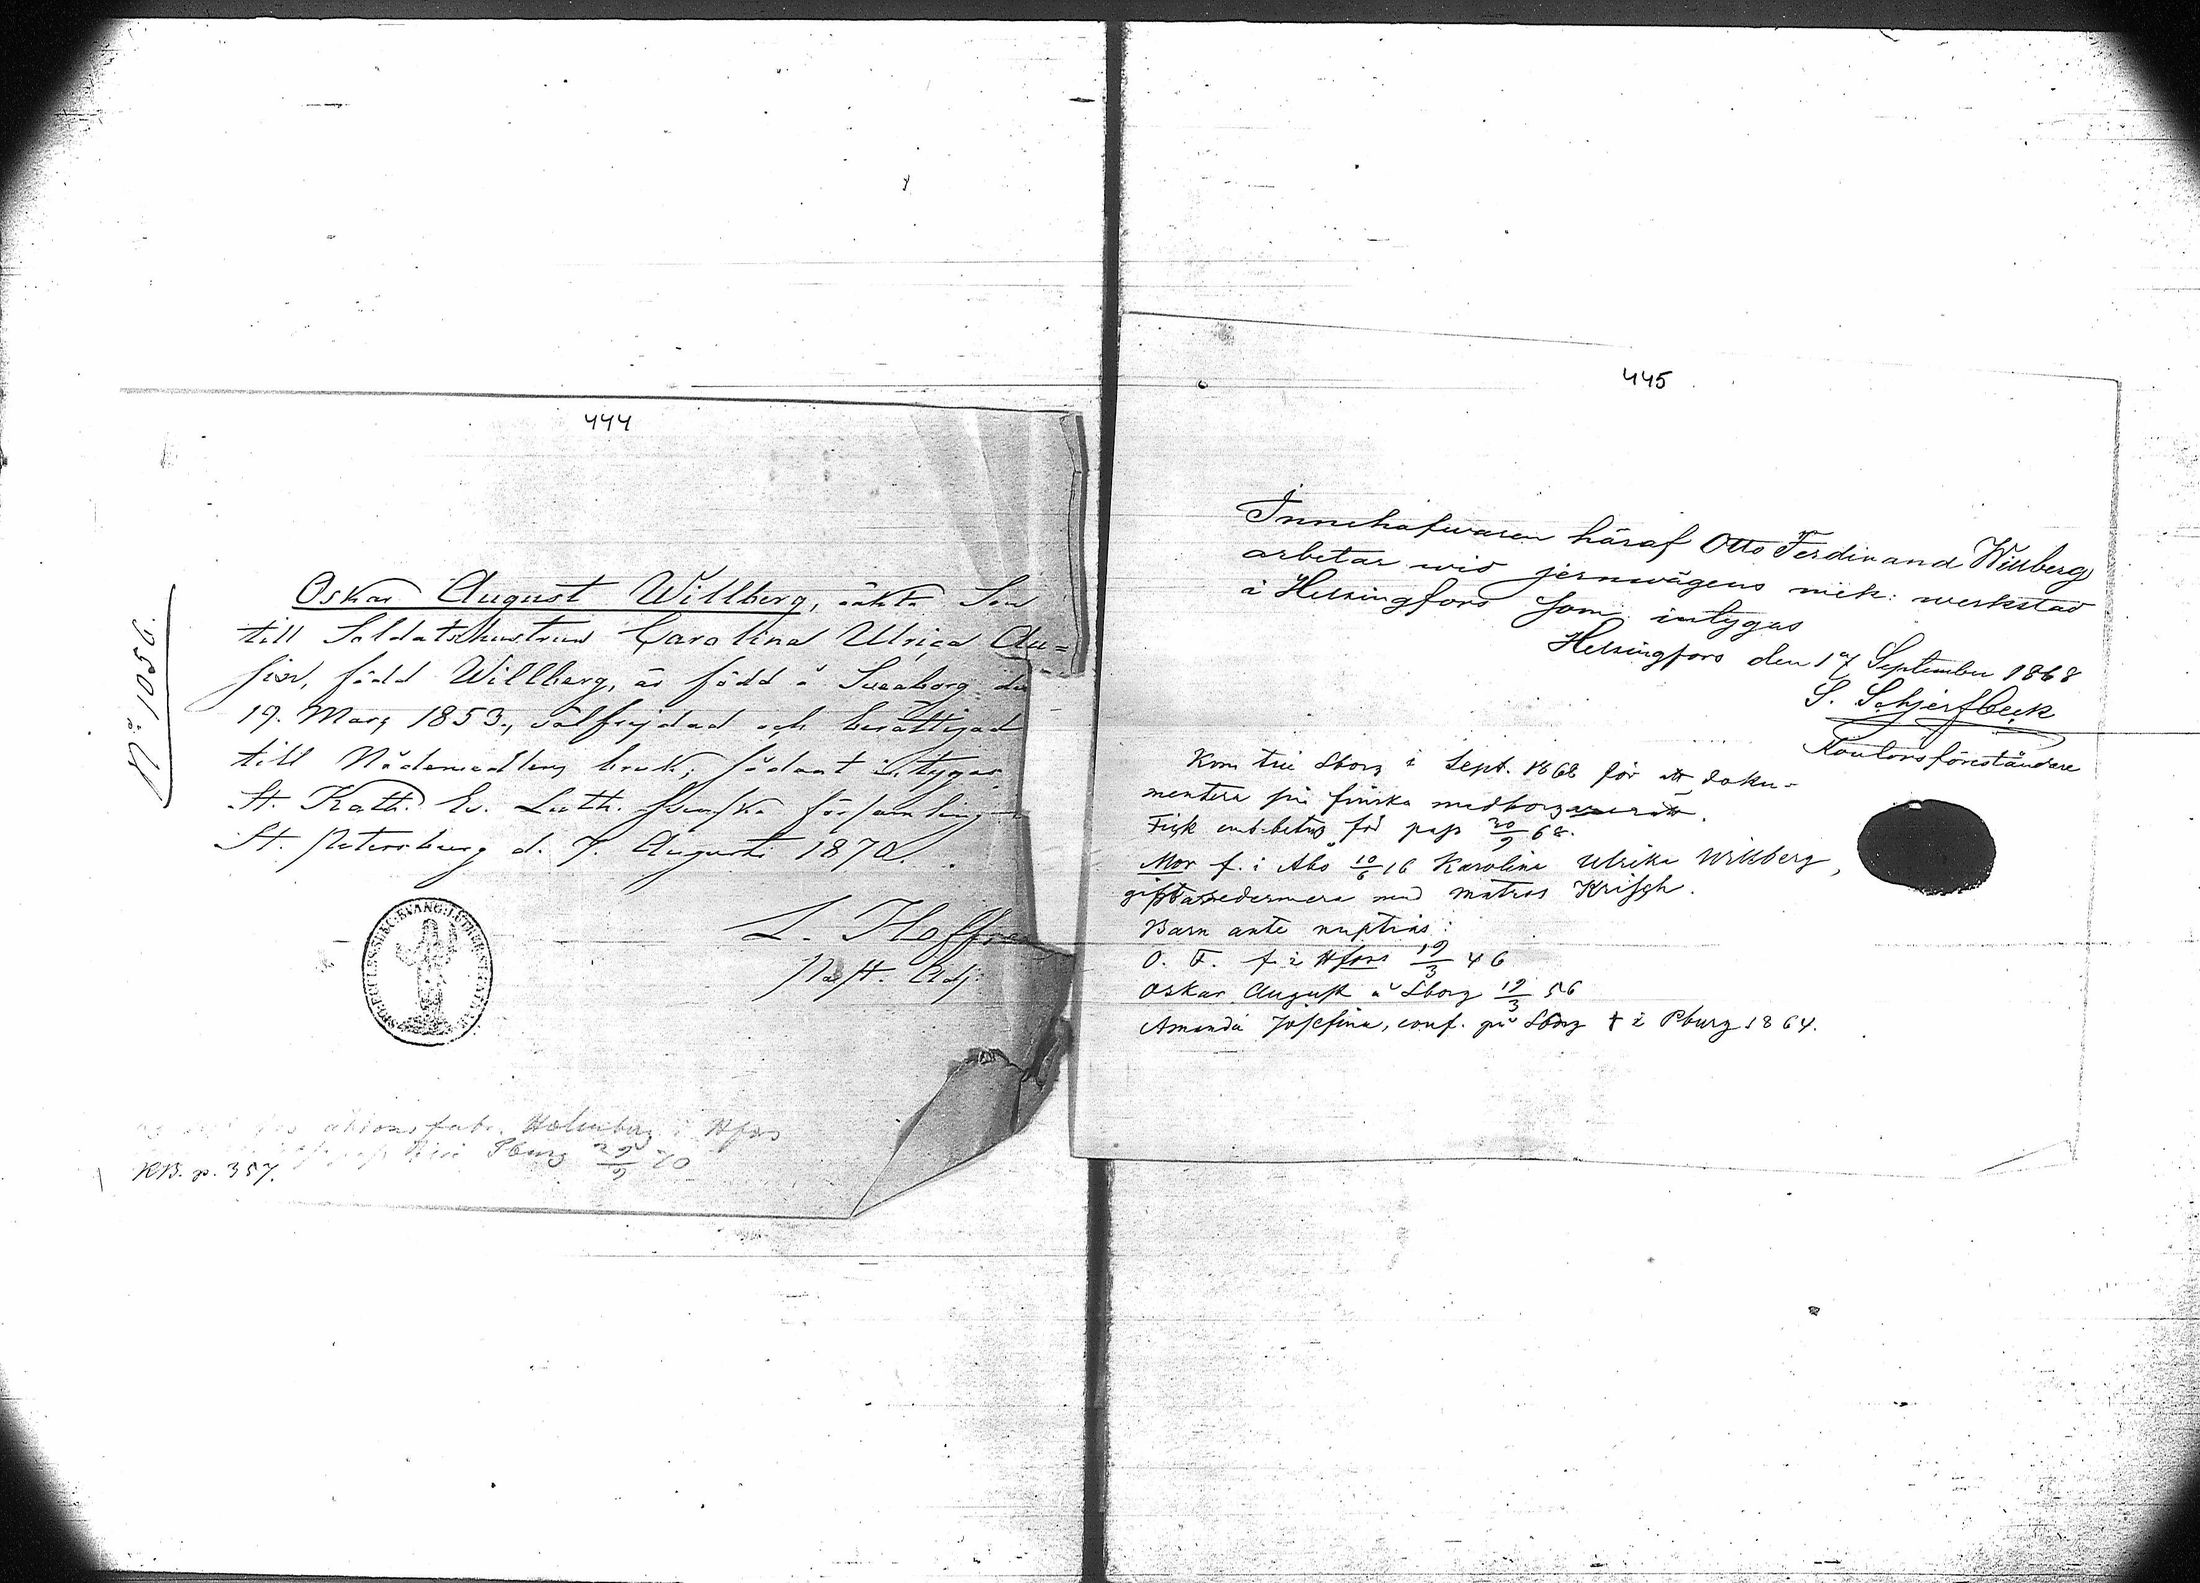 444
Nº 1056.
Oskar August Willberg, äkta Son
till Soldatshustrun Carolina Ulrica Au=
född Willberg, är född å Sveaborg den
19. Mars 1853., välfrejdad och berättigad
till Nådemedlens bruk; sådant intygas
St. Kath. Ev. Luth. Svenska församling
St. Petersburg d. 7. Augusti 1870.
L. Hoffren
Past. Adj.
Holmberg i Hfors
Pburg 29/9 70
KB. p. 357.
445
Innehafwaren häraf Otto Ferdinand Willberg
arbetar wid jernwägens mek: werkstad
i Helsingfors som intygas
Helsingfors den 17 September 1868
S. Schjerfbeck
Kontorsföreståndare
Kom till Sborg i Sept. 1868 för att doku-
mentera sin finska
Fick amb.betyg för pass 30/9 68.
Mor f. i Åbo 10/6 16 Karolina Ulrika Willberg,
gift sedermera med matros Krisch.
Barn ante nuptias:
O. F. f. i Hfors 19/3 46
Oskar August å Sborg 19/3 56
Amanda Josefina, conf. på Sborg † i Pburg 1864.